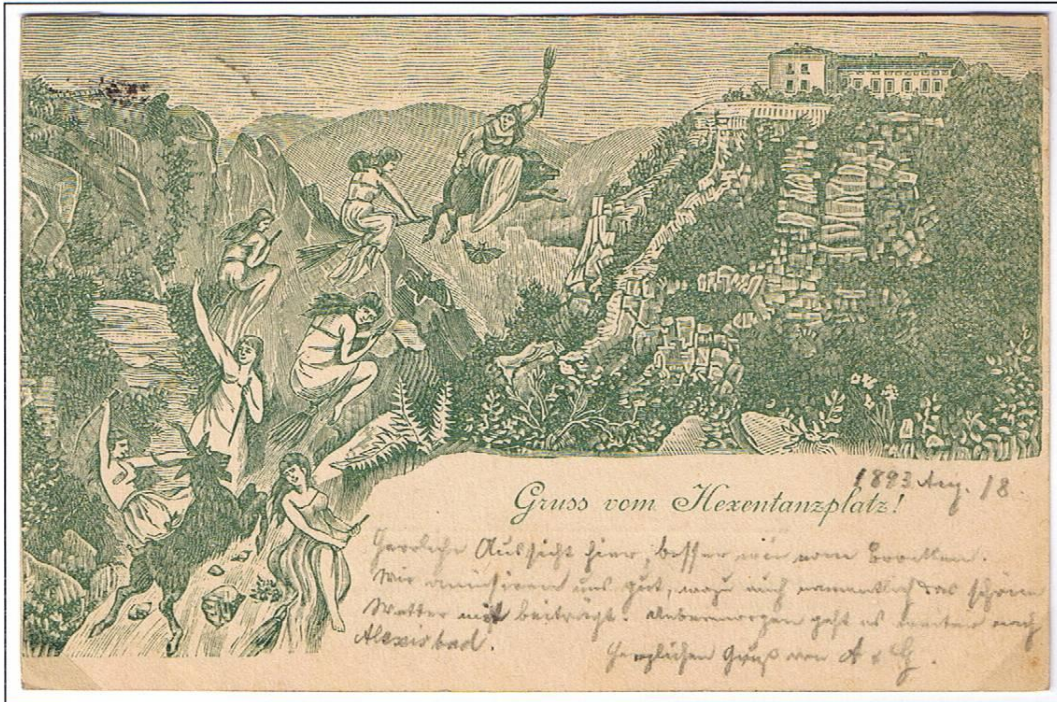 1893 Aug. 18
Gruss vom Hexentanzplatz!
Herrliche Aussicht hier, besser wie vom Brocken.
Wir amüsiren uns gut, wozu auch namentlich das schöne
Wetter mit beiträgt. Uebermorgen geht es weiter nach
Alexisbad.
Herzlichen Gruß von A & G.